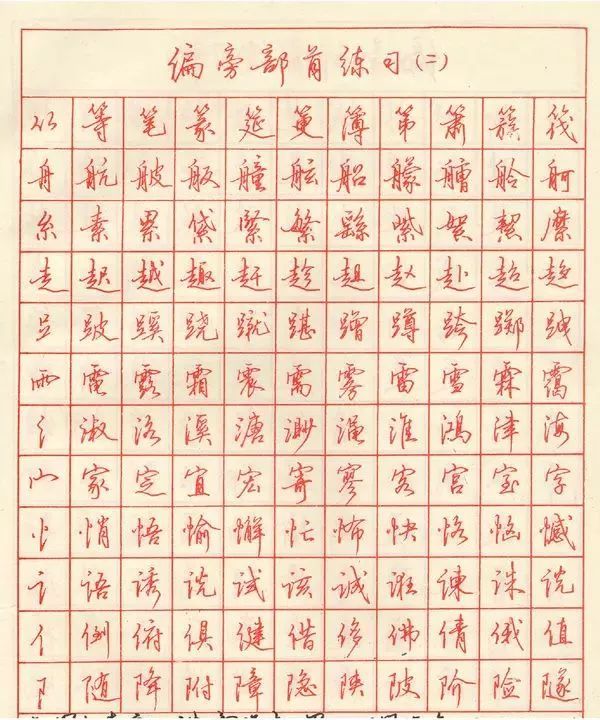 偏旁部首练习(二)
⺮ 等 笔 篆 筵 簿 第 萧 筏
舟 航 般 舨 艟 舷 船 艨 艚 舲 舸
糸 素 累 紧 繁 紫 絜 縻
走 起 越 趣 赶 趁 趄 赵 赴 超 趋
𧾷 跛 蹊 跷 蹴 踸 蹭 蹲 跨 踯 跩
雨 電 露 霜 震 需 雾 雷 雪 霖 霭
氵 淑 洛 溪 溏 渺 淮 鸿 津 海
宀 家 定 宜 宏 寄 寥 客 宫 宝 字
忄 悄 悟 愉 懈 忙 怖 快 恪 恼 憾
讠 语 诱 说 试 该 诚 诳 谏 诛 说
亻 例 俯 俱 健 借 侈 佛 倩 俄 值
阝 随 降 附 障 隐 陕 陂 阶 险 隧